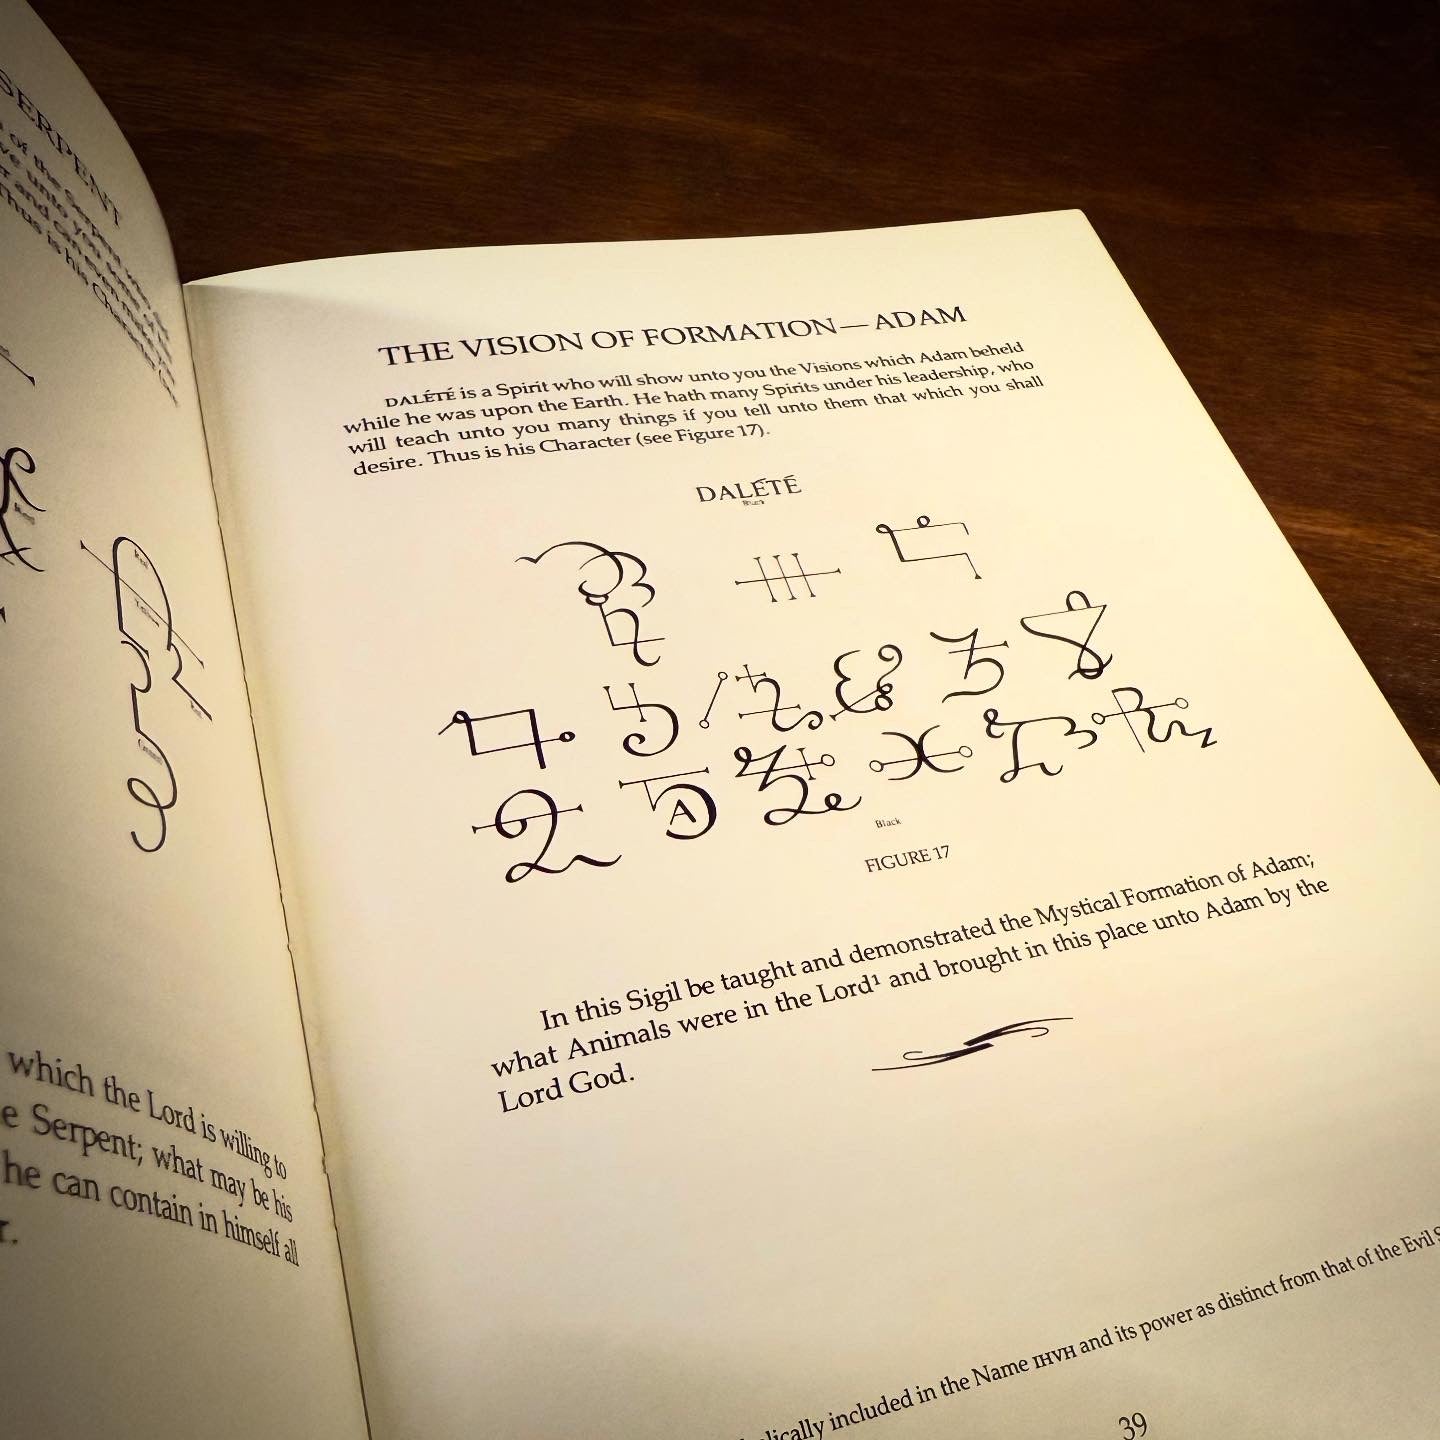 SERPENT
of the Serpent
unto you
and can even
Thus is his Character
which the Lord is willing to
e Serpent; what may be his
he can contain in himself all
r.
THE VISION OF FORMATION—ADAM
DALÉTÉ is a Spirit who will show unto you the Visions which Adam beheld
while he was upon the Earth. He hath many Spirits under his leadership, who
will teach unto you many things if you tell unto them that which you shall
desire. Thus is his Character (see Figure 17).
DALÉTÉ
Black
A
Black
FIGURE 17
In this Sigil be taught and demonstrated the Mystical Formation of Adam;
what Animals were in the Lord¹ and brought in this place unto Adam by the
Lord God.
lically included in the Name IHVH and its power as distinct from that of the Evil S
39